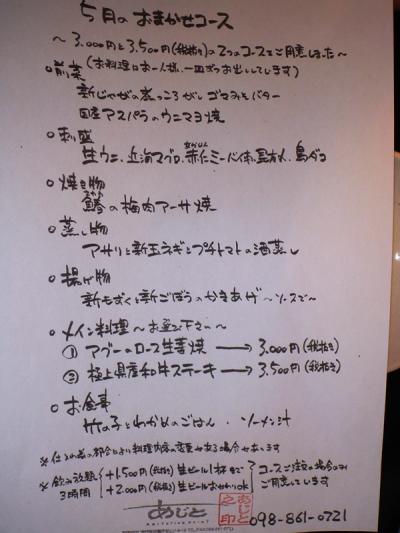 5月のおまかせコース
～3,000円と3,500円(税抜き)の2つのコースをご用意しました～
(お料理はお一人様、一皿ずつお出ししています)
○前菜
新じゃがの煮っころがし ゴマみそバター
国産アスパラのウニマヨ焼
○刺盛
生ウニ、近海マグロ、赤仁ミーバイ、島ダコ
○焼き物
鰆の梅肉アーサ焼
○蒸し物
アサリと新玉ネギとプチトマトの酒蒸し
○揚げ物
新もずくと新ごぼうのかきあげ～ソースで～
○メイン料理～お選び下さい～
① アグーのロース生姜焼 → 3,000円(税抜き)
② 極上県産和牛ステーキ → 3,500円(税抜き)
○お食事
竹の子とわかめのごはん、ソーメン汁
※仕入の都合により料理内容に変更がある場合があります
※飲み放題 3時間
+1,500円(税抜) 生ビール1杯まで
+2,000円(税抜) 生ビールおかわりOK
コースご注文の場合のみ
ご用意しています
あじと
あじと之印
098-861-0721